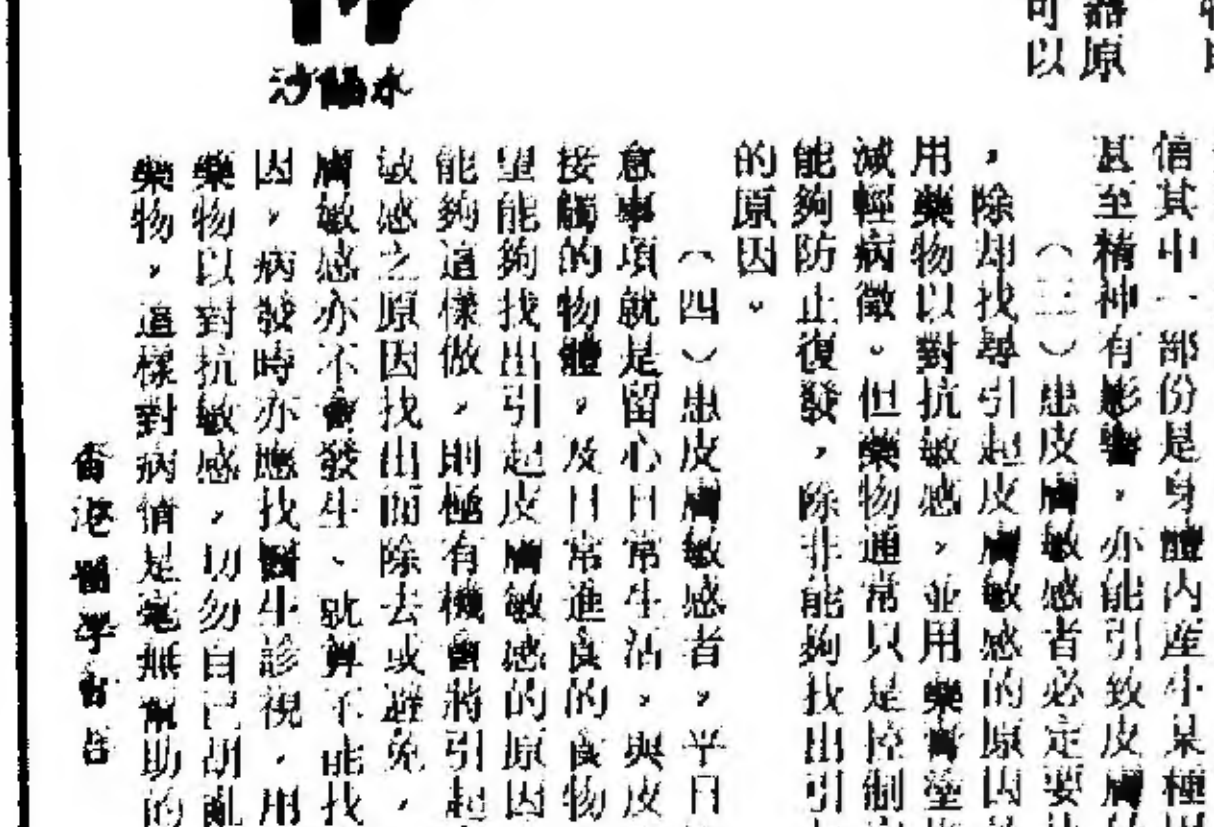 器原
可以
信其中一部份是身體內產生某種
甚至精神有影響，亦能引致皮膚
（三）患皮膚敏感者必定要
，除却找尋引起皮膚敏感的原因
用藥物以對抗敏感，並用藥膏塗
減輕病徵。但藥物通常只是控制
能夠防止復發，除非能夠找出引
的原因。
（四）患皮膚敏感者，平日
意事項就是留心日常生活，與皮
接觸的物體，及日常進食的食物
望能夠找出引起皮膚敏感的原因
能夠這樣做，則極有機會將引起
敏感之原因找出而除去或避免，
膚敏感亦不會發生、就算不能找
因，病發時亦應找醫生診視，用
藥物以對抗敏感，切勿自己胡亂
藥物，這樣對病情是毫無幫助的
沙協水
香港醫學會啓